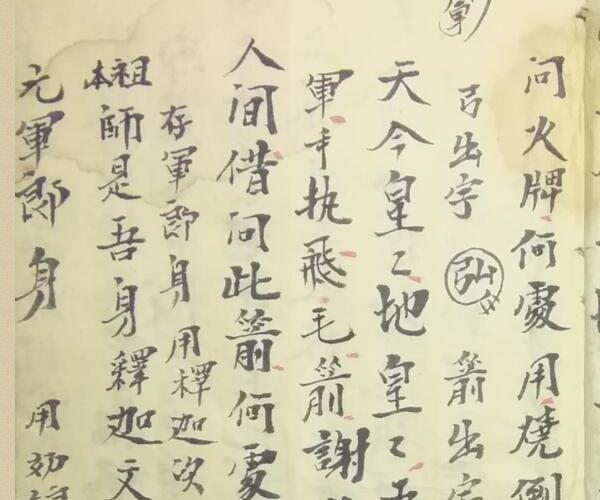 問火牌何處用燒倒
弓出字 弘 箭出字
軍
天今皇々地皇々
軍手执飛毛箭謝
人间借问此箭何處
存軍郎身 用釋迦次
本祖師是吾身釋迦文
元軍郎身 用